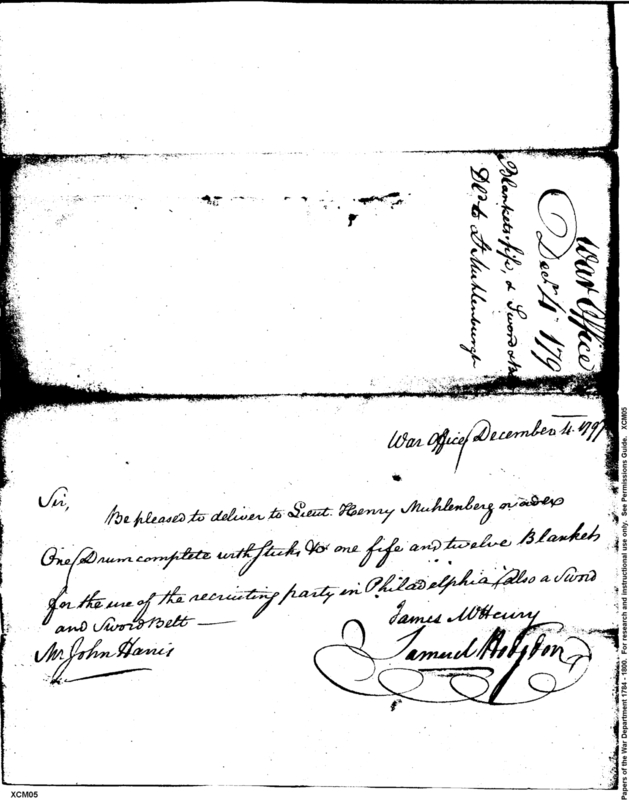 War Office
Decr 4 179
Blankets, fife, & Sword &
Dld to Lt Muhlenburgh
War Office December 4. 1797
Sir,
Be pleased to deliver to Lieut. Henry Muhlenberg or order
One Drum complete with sticks &c one fife and twelve Blankets
for the use of the recruiting party in Philadelphia, also a Sword
and Sword Belt —
James McHenry
Mr John Harris
Samuel Hodgdon
Papers of the War Department 1784 - 1800. For research and instructional use only. See Permissions Guide. XCM05
XCM05